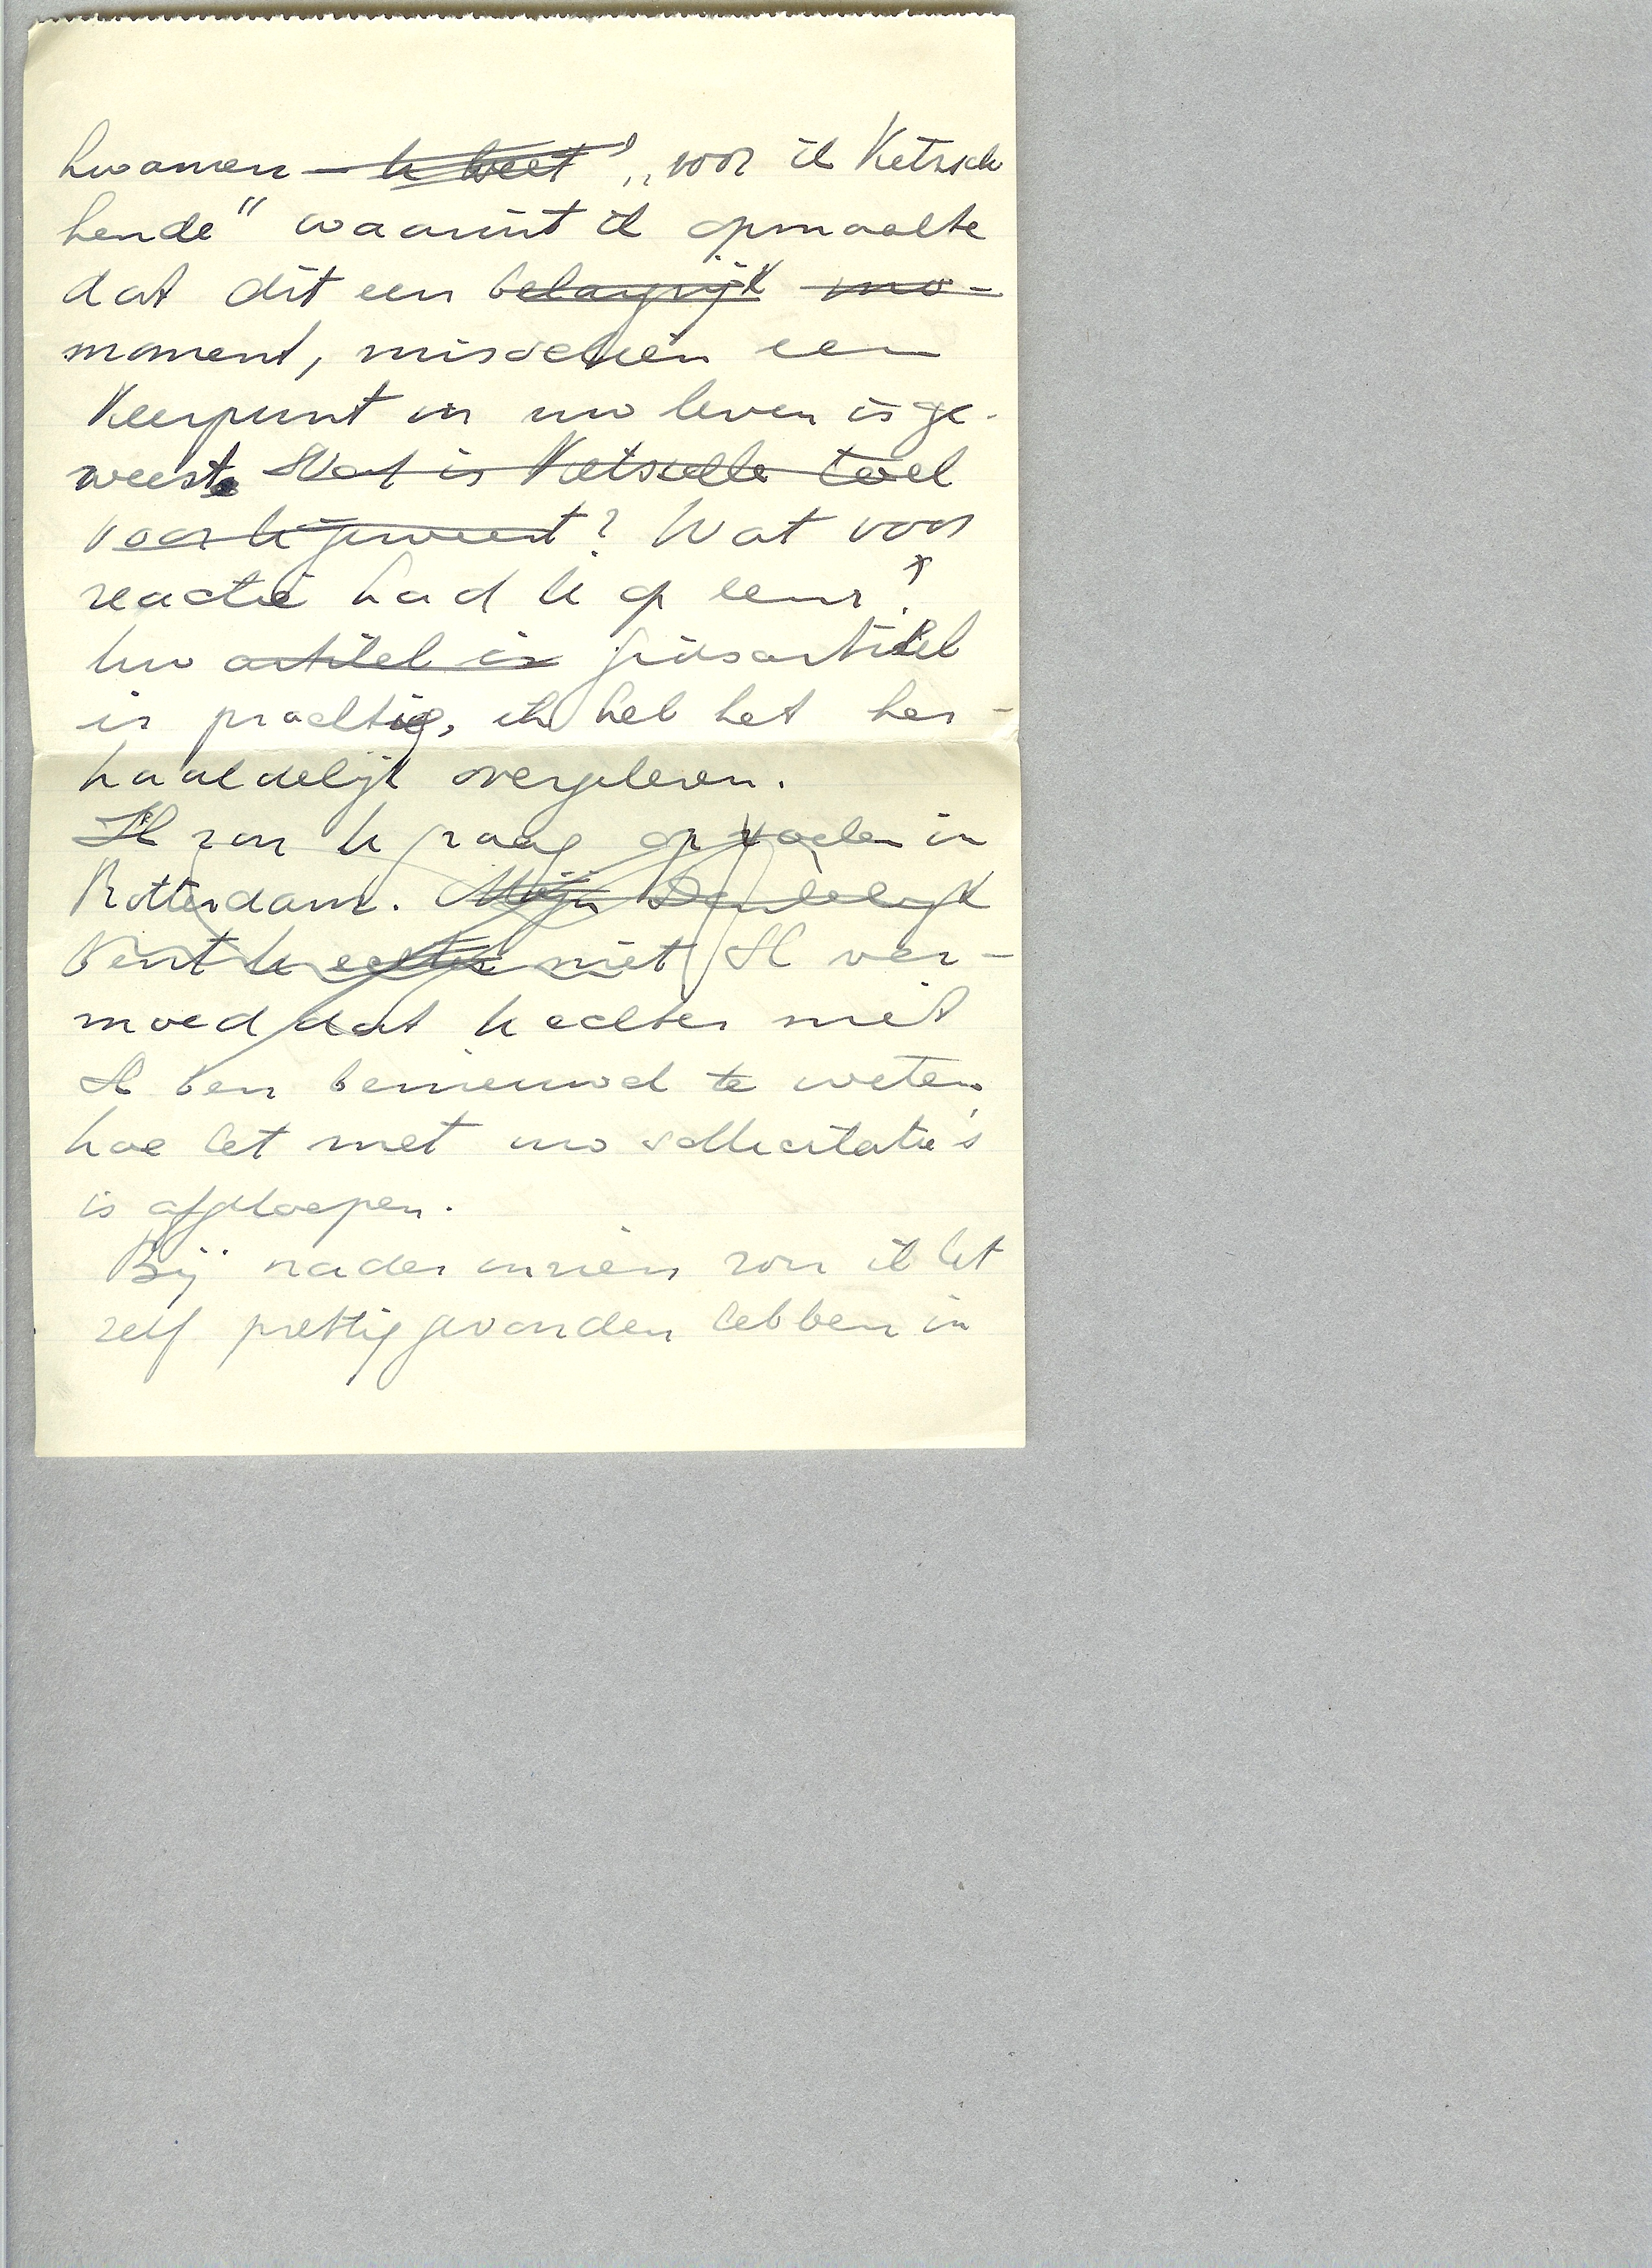 kwamen — u weet „voor ik Ketsch
kende" waaruit ik opmaakte
dat dit een belangrijk mo-
moment, misschien een
keerpunt in uw leven is ge-
weest. Wat is Ketsch toch
voor u geweest? Wat voor
reactie had u op hem?
Uw artikel is grijsartikel
is prachtig, ik heb het her-
haaldelijk overgelezen.
Ik zou u graag opzoeken in
Rotterdam. Mijn Dankelijk
bent u echter niet Ik ver-
moed dat u echter niet
Ik ben benieuwd te weten
hoe het met uw sollicitatie's
is afgelopen.
Bij nader inzien zou ik het
zelf prettig gevonden hebben in